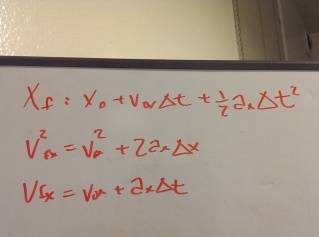 X_f = X_0 + V_0x Δt + 1/2 a_x Δt^2
V_fx^2 = V_0^2 + 2 a_x Δx
V_fx = V_0x + a_x Δt